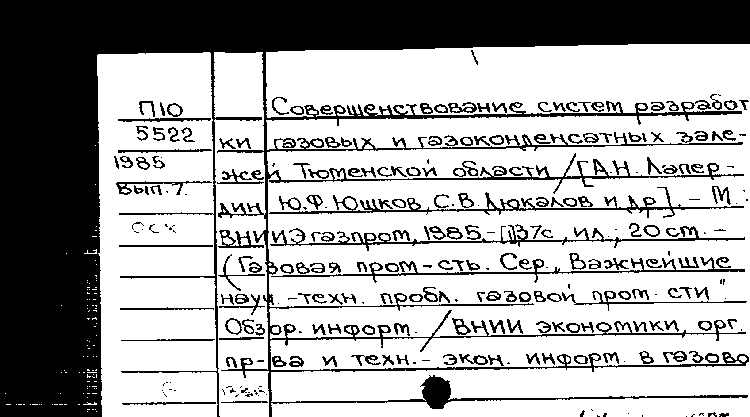 П10 Совершенствование систем разработ
5522 ки газовых и газоконденсатных зале-
1985 жей Тюменской области / [А.Н. Лапер-
Вып. 7. дин, Ю.Ф. Юшков, С.В. Дюкалов и др]. - М.:
ОСК ВНИИЭгазпром, 1985. - [1]37с, ил.; 20 cm. -
(Газовая пром-сть. Сер., Важнейшие
науч -техн. пробл. газовой пром сти".
Обзор. информ. / ВНИИ экономики, орг.
пр-ва и техн. - экон. информ. в газово